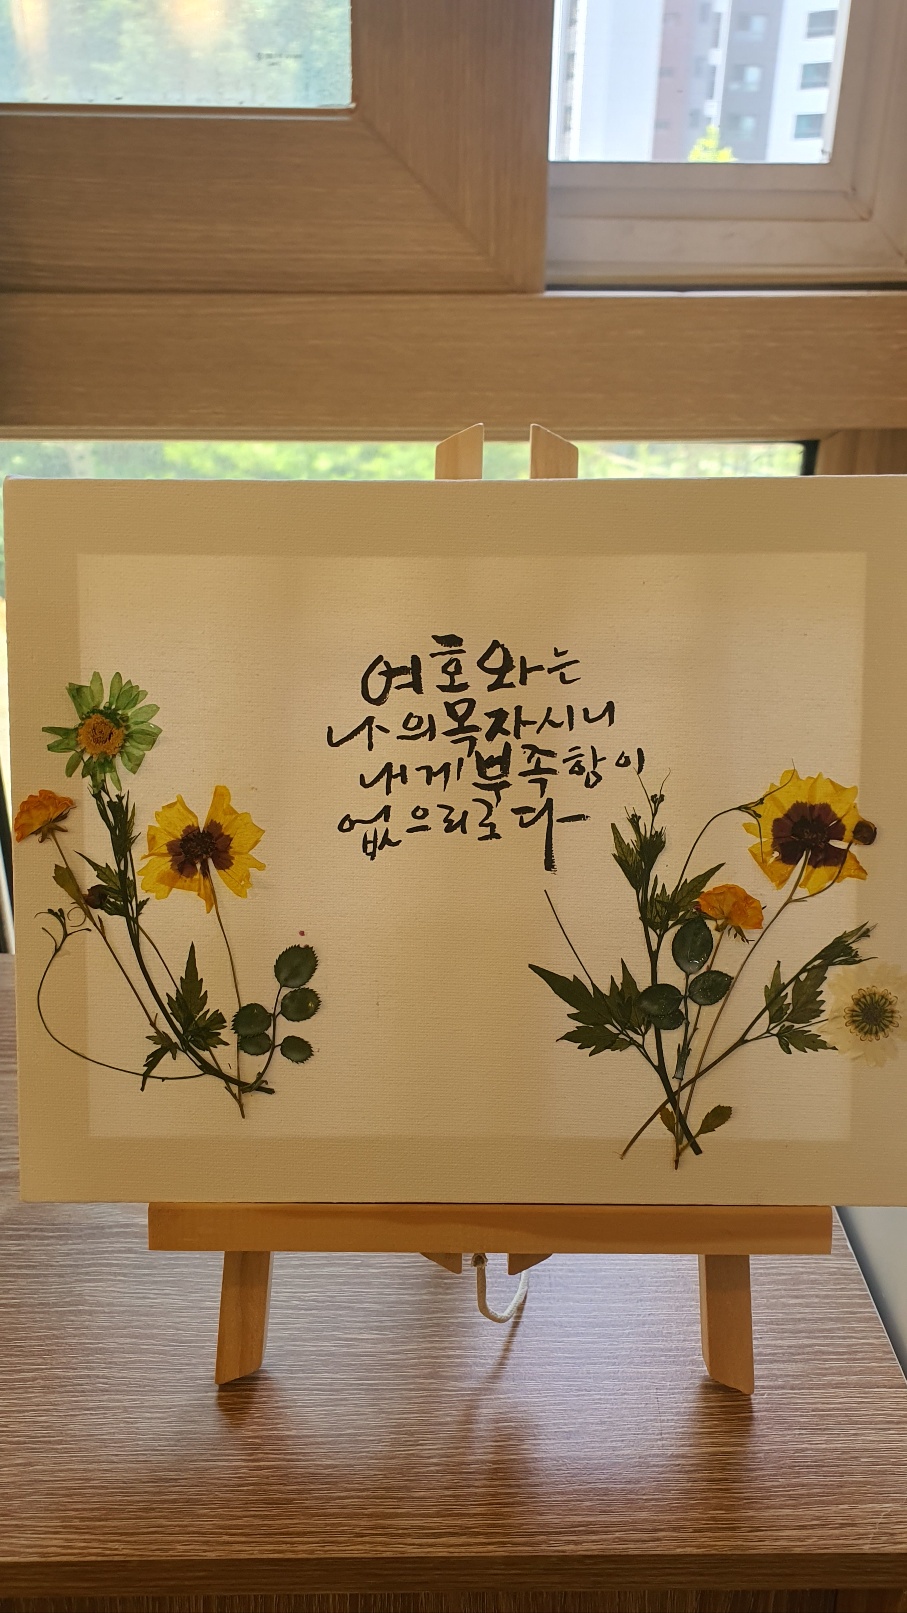 여호와는
나의 목자시니
내게 부족함이
없으리로다